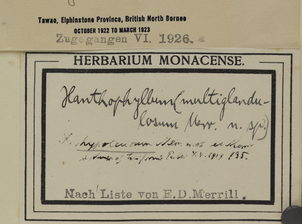 Tawao, Elphinstone Province, British North Borneo
OCTOBER 1922 TO MARCH 1923
Zugegangen VI. 1926.
HERBARIUM MONACENSE.
Xanthophyllum (multiglandu-
losum Merr. n. sp.)
X. hypoleucum Merr.
1919 135.
Nach Liste von E.D. Merrill.